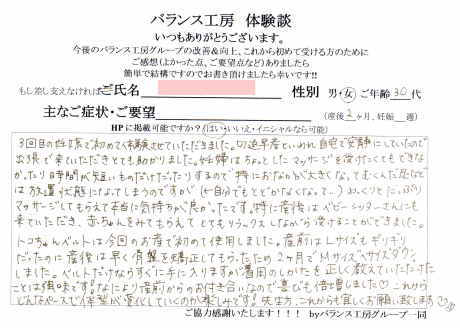 バランス工房 体験談
いつもありがとうございます。
今後のバランス工房グループの改善&向上、これから初めて受ける方のために
ご感想(よかった点、ご要望点など)ありましたら
簡単で結構ですのでお書き頂けましたら幸いです!!
もし差し支えなければご氏名 性別 男・女 ご年齢 30 代
主なご症状・ご要望 (産後 2ヶ月、妊娠 週)
HPに掲載可能ですか?(はい・いいえ・イニシャルなら可能)
3回目の妊娠で初めて体験させていただきました。切迫早産といわれ自宅で安静にしていたので
出張で来ていただきとても助かりました。妊婦はちょっとしたマッサージを受けたくてもできな
かったり時間が短いものだったりするので特におなかが大きくなってむくんだ足などは
放置状態になってしまうのですが(自分でもとどかなくなって…)ゆっくりとたっぷり
マッサージしてもらえて本当に気持ちが良かったです。特に産後はベビーシッターさんにも
来ていただき、赤ちゃんをみてもらえてとてもリラックスしながら受けることができました。
トコちゃんベルトは今回のお産で初めて使用しました。産前はLサイズもギリギリ
だったのに産後は早く骨盤を矯正してもらったため2ヶ月でMサイズへサイズダウン
しました。ベルトだけならすぐに手に入りますが着用のしかたを正しく教えていただけた
ことは強味です!なにより産前からのお付き合いなので喜びも倍増しました♡これから
どんなペースで体型が変化していくのか楽しみです!先生方、これからも宜しくお願い致します
ご協力感謝いたします!!! byバランス工房グループ一同